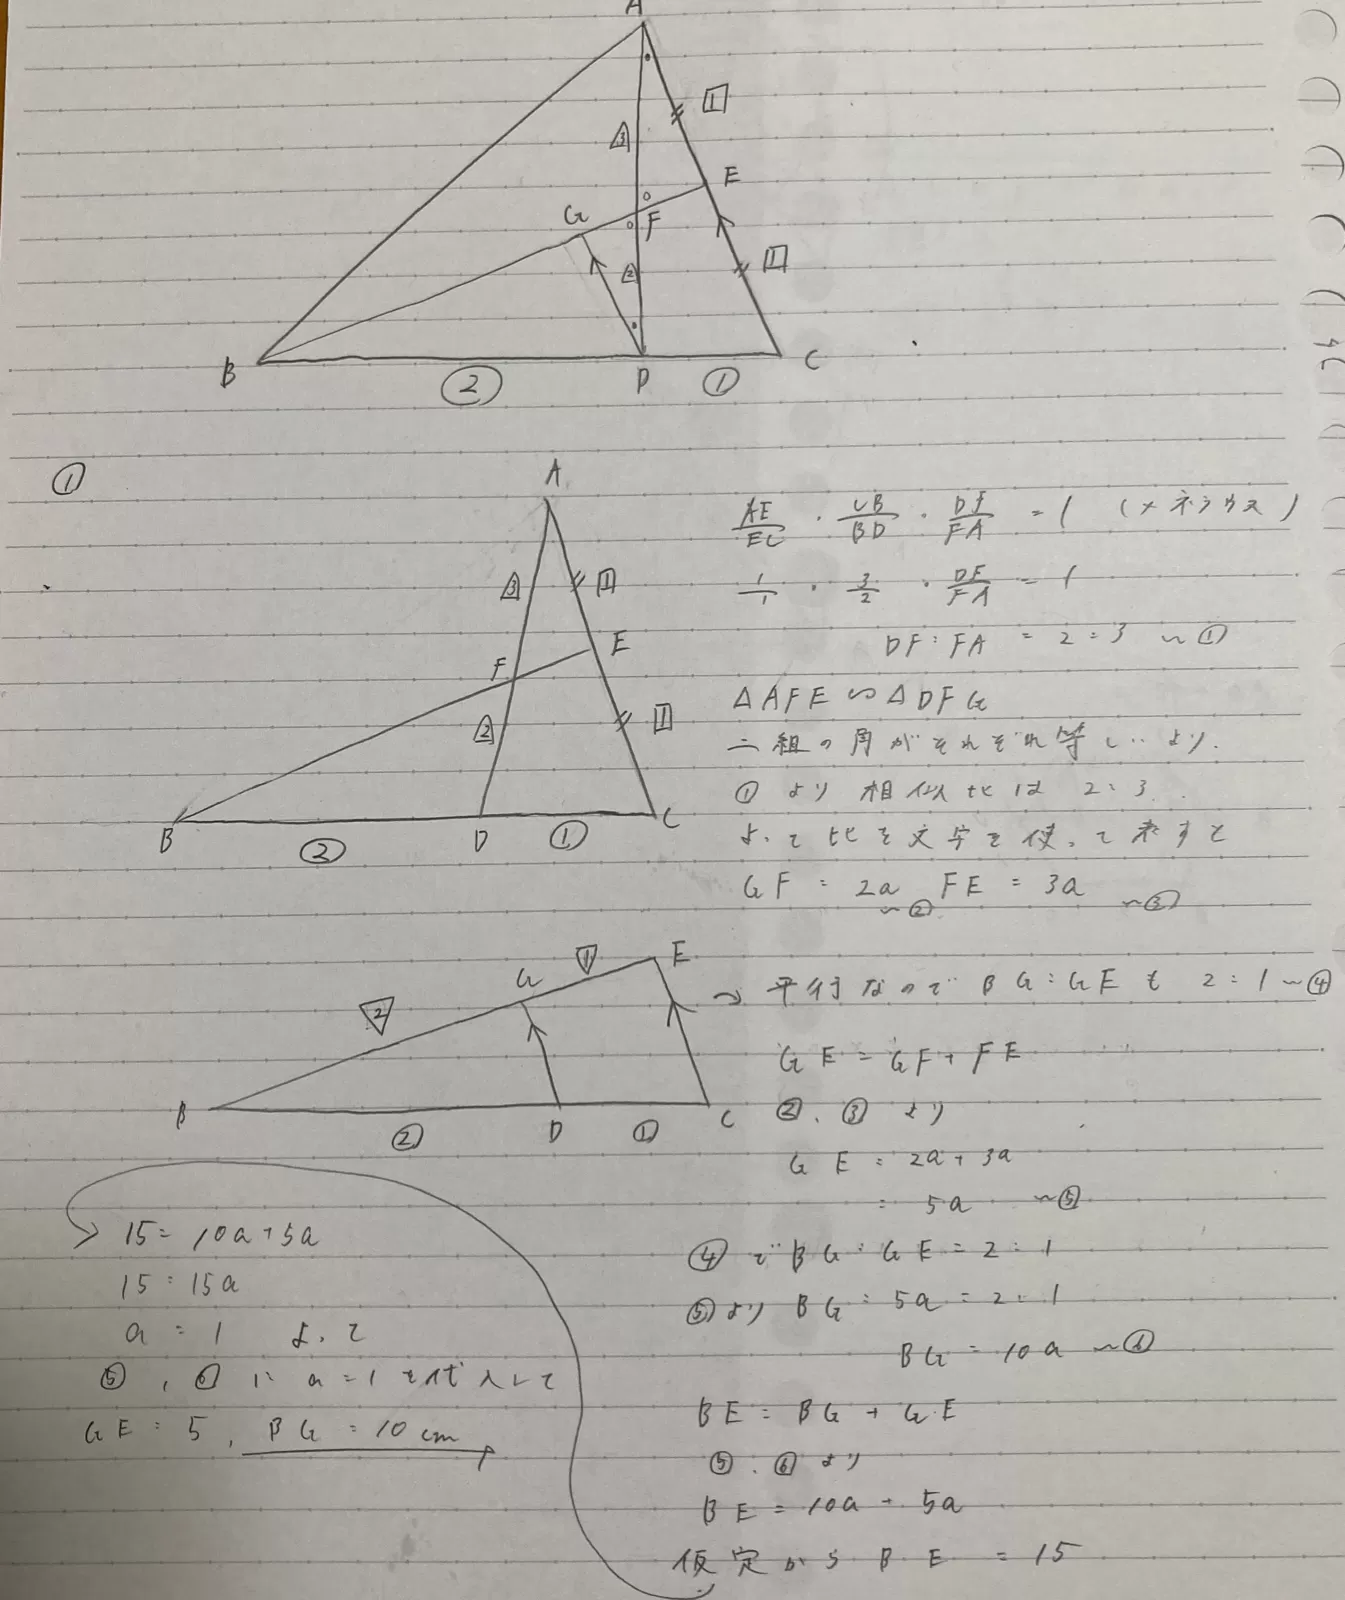 A
1
3
E
G
F
2
1
B
2
D
1
C
①
A
3
1
E
F
2
1
B
2
D
1
C
AE/EC · CB/BD · DF/FA = 1 (メネラウス)
1/1 · 3/2 · DF/FA = 1
DF:FA = 2:3 〜①
△AFE ∽ △DFG
二組の角がそれぞれ等しいより
①より相似比は 2:3
よって比を文字を使って表すと
GF = 2a FE = 3a
〜② 〜③
G
1
E
2
B
2
D
1
C
→ 平行なので BG:GE も 2:1 〜④
GE = GF + FE
②、③より
GE = 2a + 3a
= 5a 〜⑤
④で BG:GE = 2:1
⑤より BG:5a = 2:1
BG = 10a 〜⑥
BE = BG + GE
⑤、⑥より
BE = 10a + 5a
仮定から BE = 15
15 = 10a + 5a
15 = 15a
a = 1 よって
⑤、⑥に a = 1 を代入して
GE = 5, BG = 10 cm